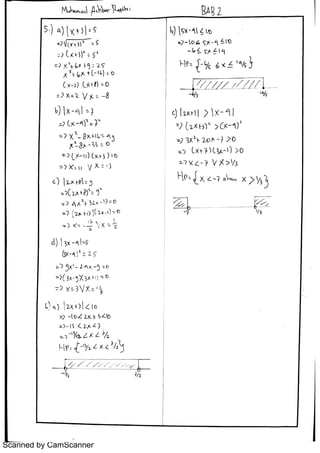 BAB 2
5.) a) |x+3| = 5
=> √(x+3)² = 5
=> (x+3)² = 5²
=> x²+6x+9 = 25
x²+6x+(-16) = 0
(x-2) (x+8) = 0
=> x=2 V x = -8
b) |x-4| = 7
=> (x-4)² = 7²
=> x²-8x+16 = 49
x²-8x-33 = 0
=> (x-11)(x+3) = 0
=> x=11 V x = -3
c) |2x+8| = 9
=> (2x+8)² = 9²
=> 4x²+32x-17=0
=> (2x+17)(2x-1)=0
d) |3x-4|=5
(3x-4)² = 25
=> 9x²-24x-9=0
=> (3x-9)(3x+1)=0
=> x=3 V x=-1/3
6) a) |2x+3| < 10
=> -10 < 2x+3 < 10
=> -13 < 2x < 7
=> -13/2 < x < 7/2
HP= {-13/2 < x < 7/2}
-13/2 7/2
b) |5x-4| ≤ 10
=> -10 ≤ 5x-4 ≤ 10
-6 ≤ 5x ≤ 14
HP= {-6/5 ≤ x ≤ 14/5}
-6/5 14/5
c) |2x+3| > |x-4|
=> (2x+3)² > (x-4)²
=> 3x²+20x-7 > 0
=> (x+7)(3x-1) > 0
=> x<-7 V x>1/3
HP= {x < -7 atau x > 1/3}
-7 1/3
Scanned by CamScanner